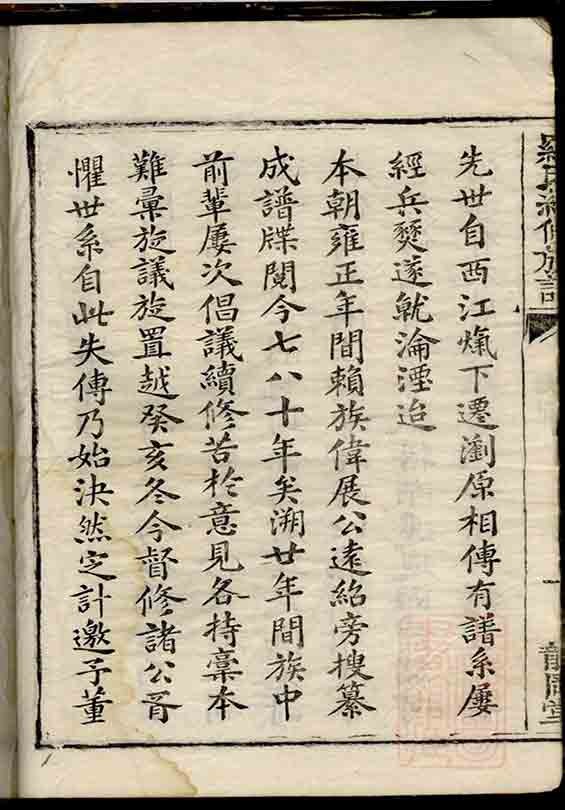 先世自西江熂下遷瀏原相傳有譜系屢
經兵燹遂就淪湮迨
本朝雍正年間賴族偉展公遠紹旁搜纂
成譜牒閱今七八十年矣溯廿年間族中
前輩屢次倡議續修苦於意見各持稾本
難彙旋議旋置越癸亥冬今督修諸公胥
懼世系自此失傳乃始決然定計邀予董